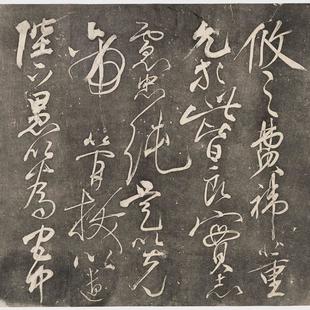 攸之費禕董
允等此皆良實志
慮忠純是以先
帝簡拔以遺
陛下愚以為宮中